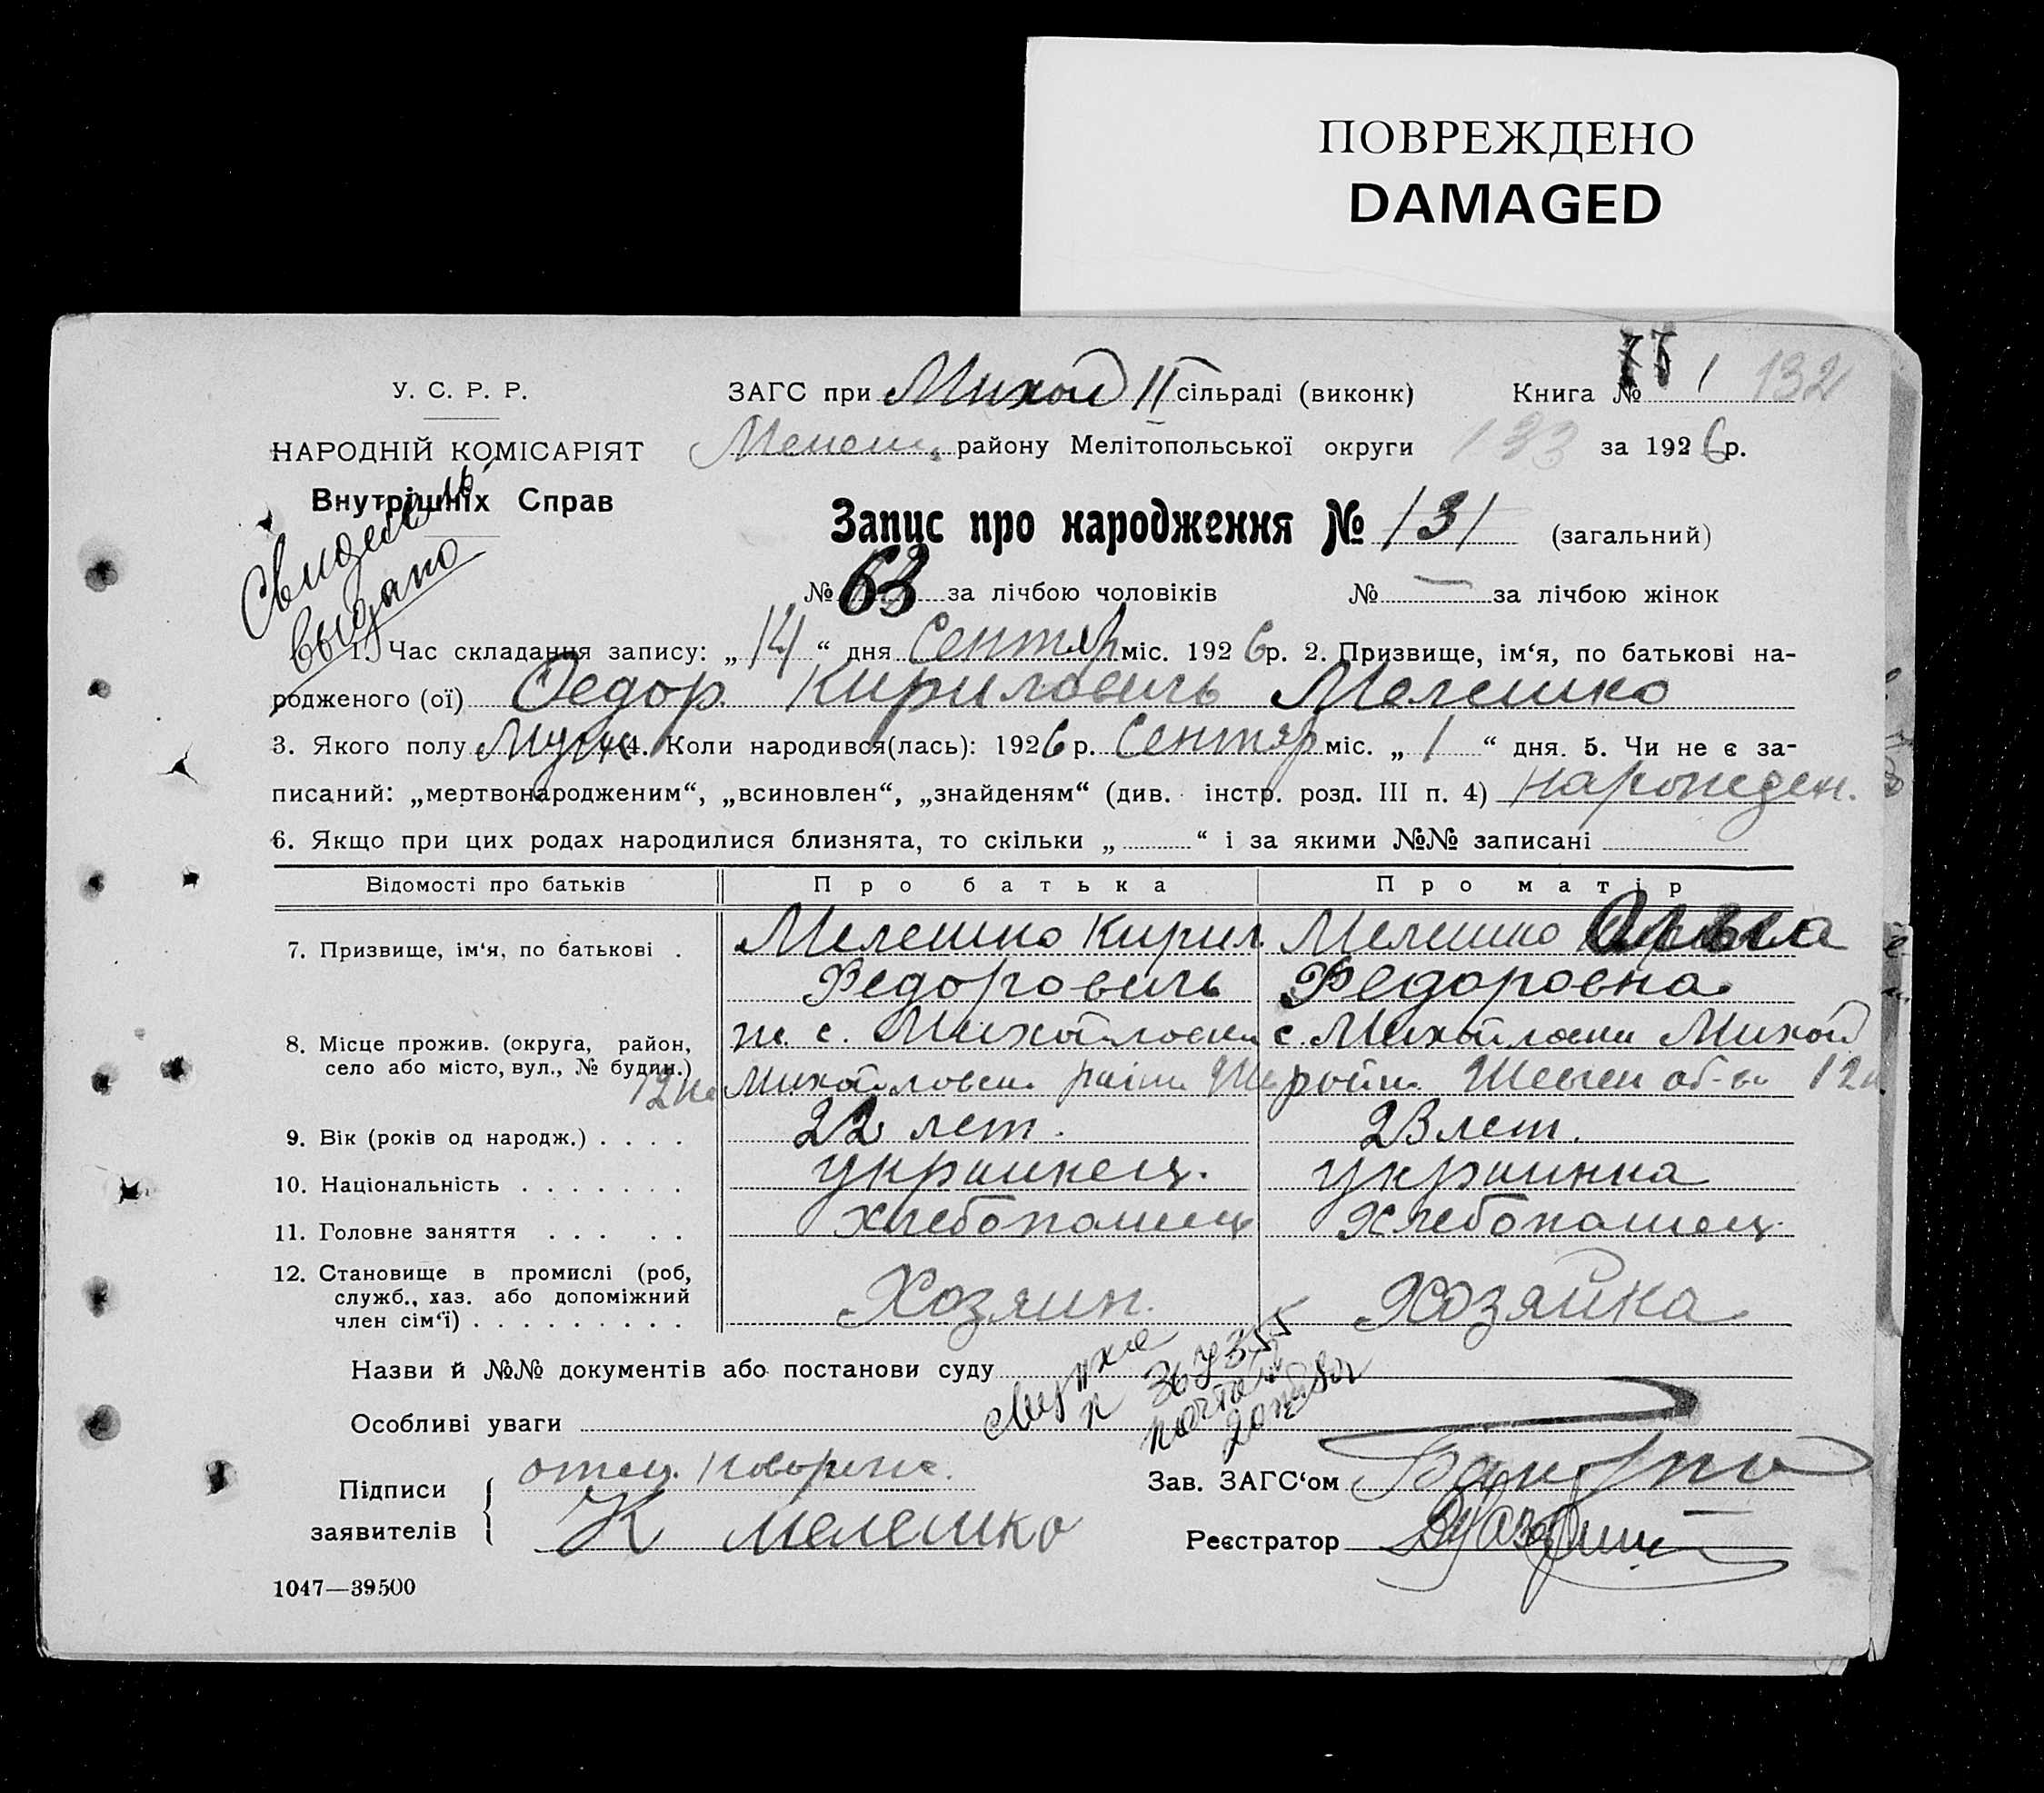 ПОВРЕЖДЕНО
DAMAGED
У. С. Р. Р.
НАРОДНІЙ КОМІСАРІЯТ
Внутрішніх Справ
выдано
ЗАГС при Михай II сільраді (виконк) Книга № 1 132
району Мелітопольської округи 133 за 1926 р.
Запис про народження № 131 (загальний)
№ 63 за лічбою чоловіків № — за лічбою жінок
1. Час складання запису: „14“ дня Сентяб міс. 1926 р. 2. Призвище, ім‘я, по батькові на-
родженого (ої) Федор Кирилович Мелешко
3. Якого полу Муж 4. Коли народився(лась): 1926 р. Сентяб міс. „1“ дня. 5. Чи не є за-
писаний: „мертвонародженим“, „всиновлен“, „знайденям“ (див. інстр. розд. III п. 4) нарожден.
6. Якщо при цих родах народилися близнята, то скільки „ “ і за якими №№ записані
Відомості про батьків Про батька Про матір
7. Призвище, ім‘я, по батькові . Мелешко Кирил Мелешко
Федорович Федоровна
8. Місце прожив. (округа, район, ж. с. Михайловки с. Михайловки Михай
село або місто, вул., № будин.) Михайловск. район.
9. Вік (років од народж.) . . . . 22 лет. 23 лет.
10. Національність . . . . . . . украинец. украинка
11. Головне заняття . . . . . хлебопашец хлебопашец
12. Становище в промислі (роб,
служб., хаз. або допоміжний
член сім‘ї) . . . . . . . . . Хозяин. Хозяйка
Назви й №№ документів або постанови суду
Особливі уваги
Підписи заявителів отец
К Мелешко
Зав. ЗАГС‘ом
Реєстратор
1047—39500